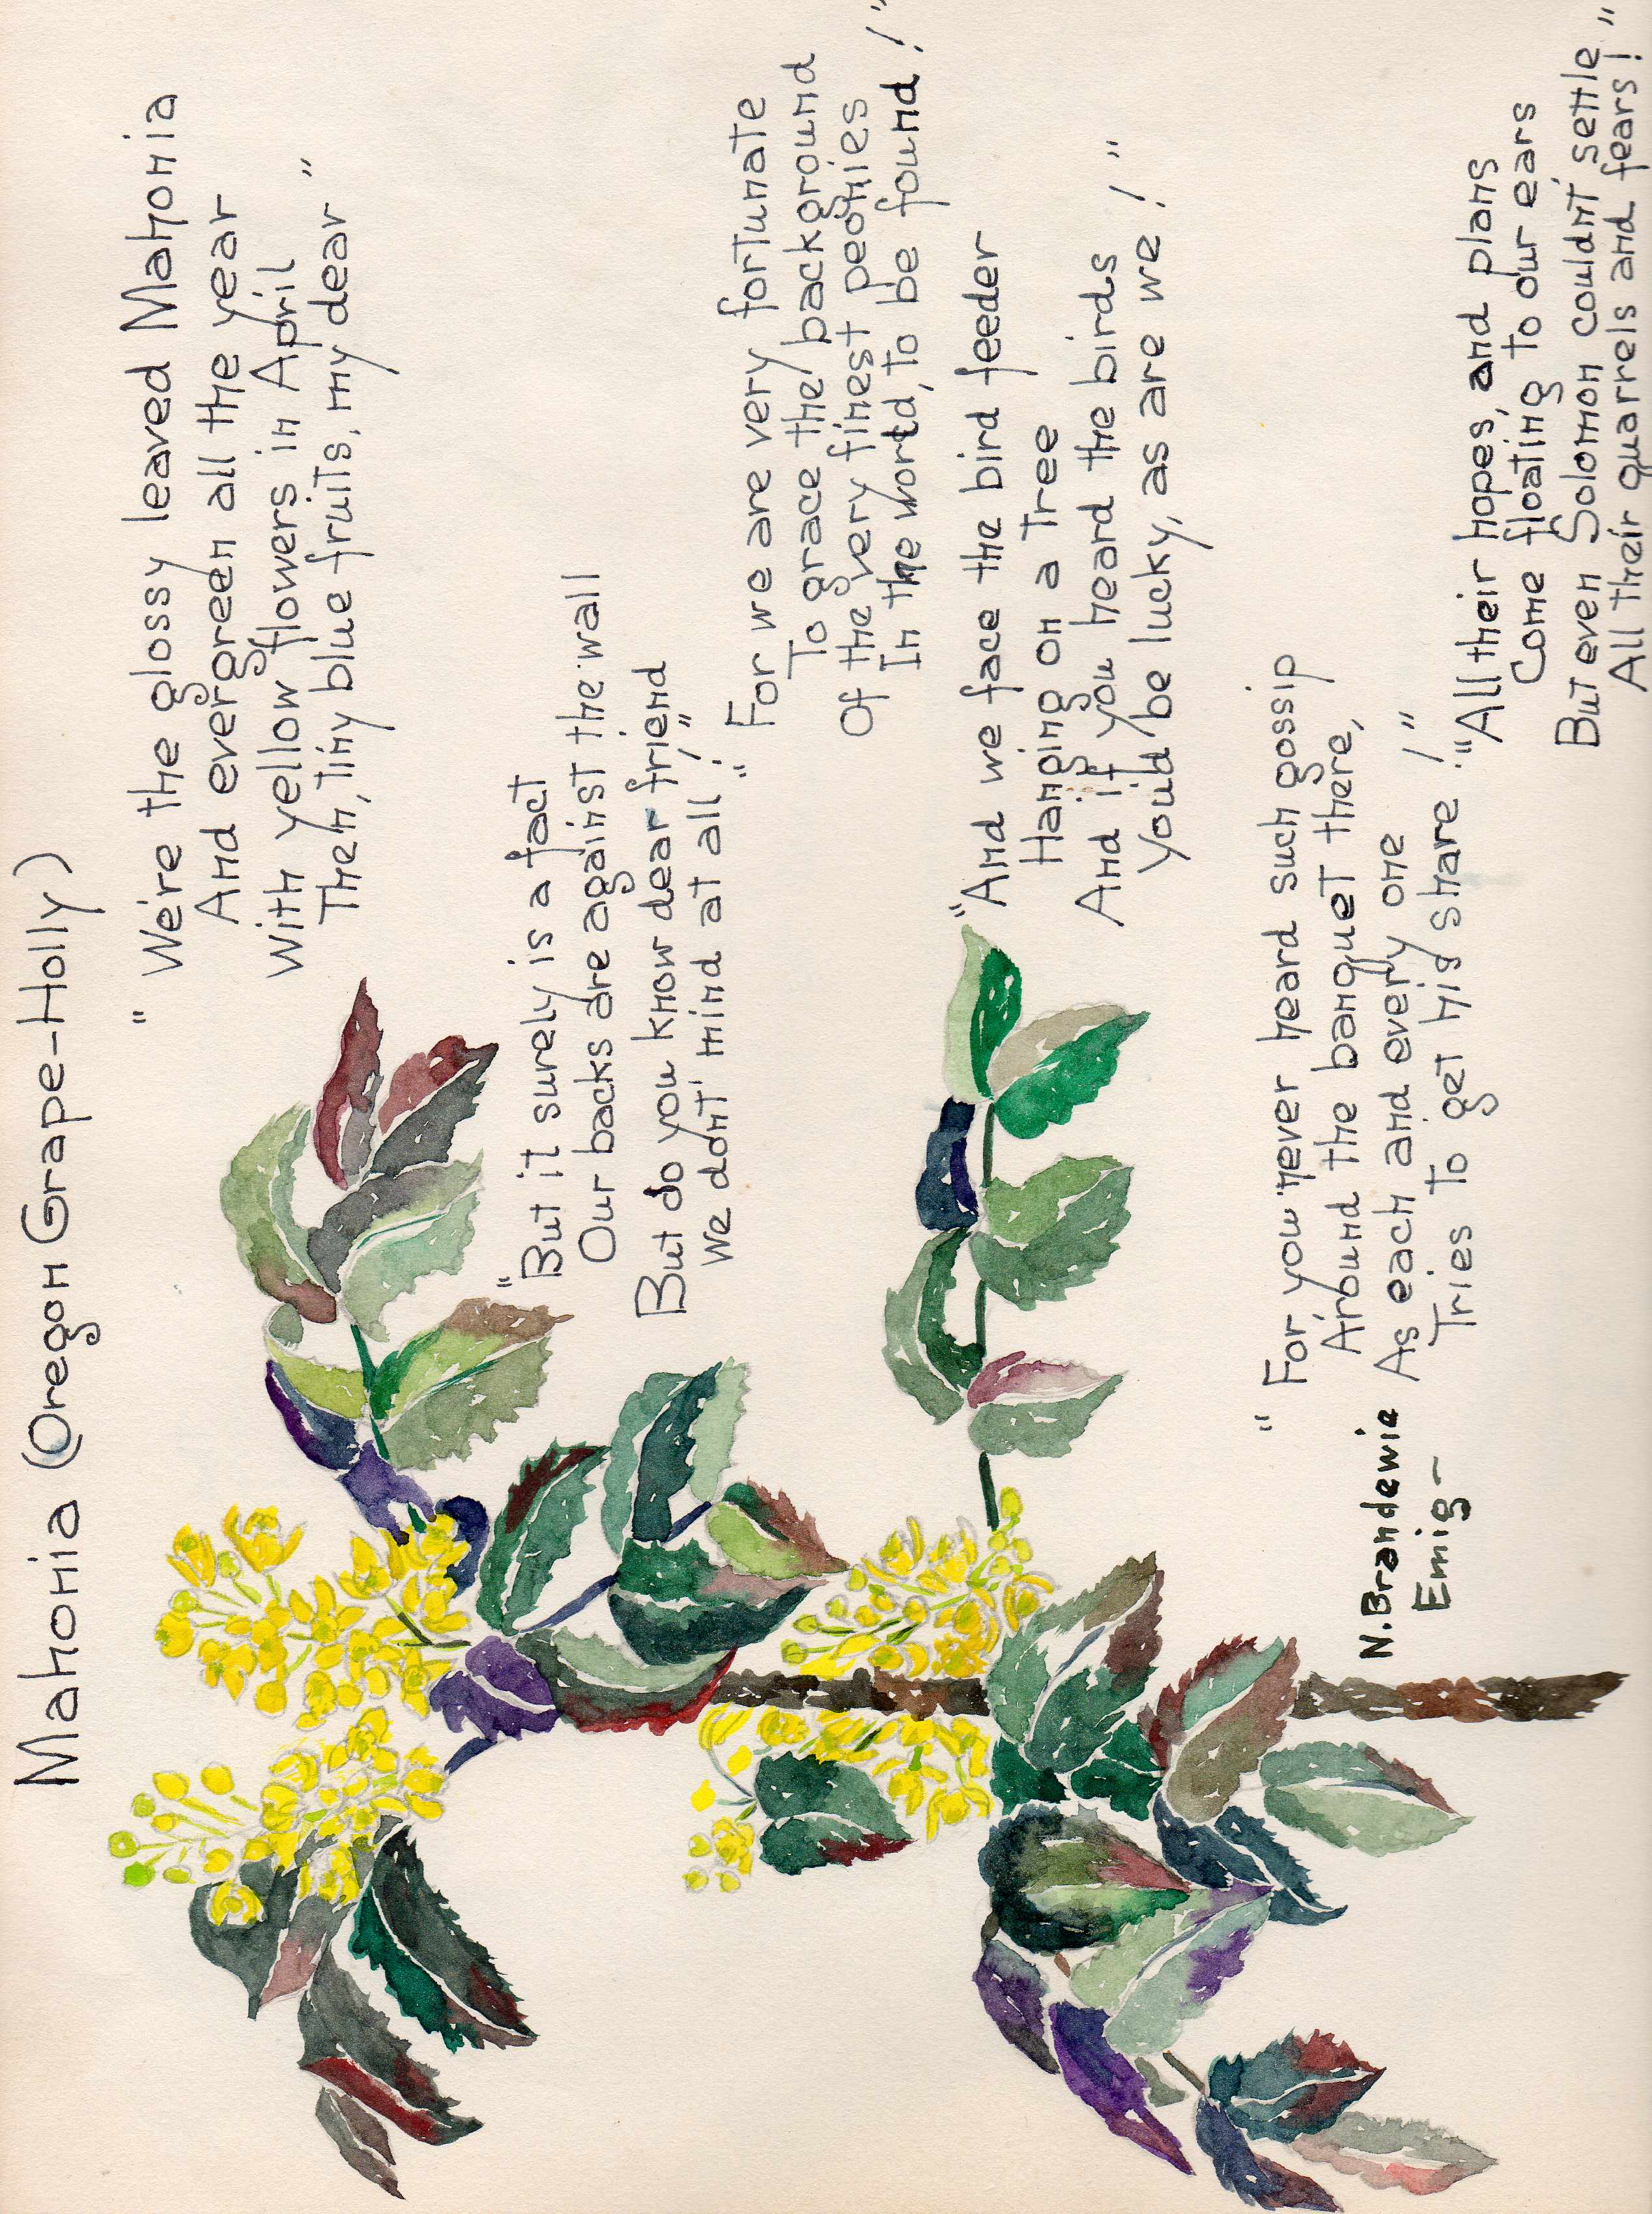 Mahonia (Oregon Grape-Holly)
"We're the glossy leaved Mahonia
And evergreen all the year
With yellow flowers in April
Then, tiny blue fruits, my dear"
"But it surely is a fact
Our backs are against the wall
But do you know dear friend
We don't mind at all!"
"For we are very fortunate
To grace the background
Of the very finest peonies
In the world, to be found!"
"And we face the bird feeder
Hanging on a tree
And if you heard the birds
You'd be lucky, as are we!"
"For you never heard such gossip
Around the banquet there,
As each and every one
Tries to get his share!"
"All their hopes, and plans
Come floating to our ears
But even Solomon couldn't settle
All their quarrels and fears!"
N. Brandewie
Emig-